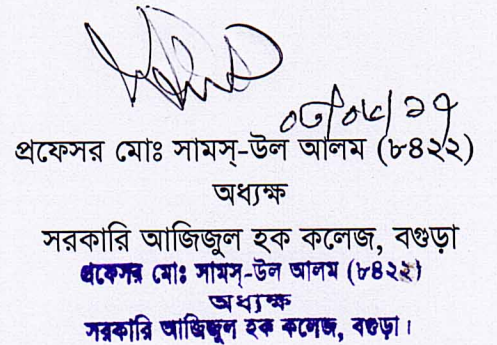 ০৩/০৮/১৭
প্রফেসর মোঃ সামস্-উল আলম (৮৪২২)
অধ্যক্ষ
সরকারি আজিজুল হক কলেজ, বগুড়া
প্রফেসর মোঃ সামস্-উল আলম (৮৪২২)
অধ্যক্ষ
সরকারি আজিজুল হক কলেজ, বগুড়া।